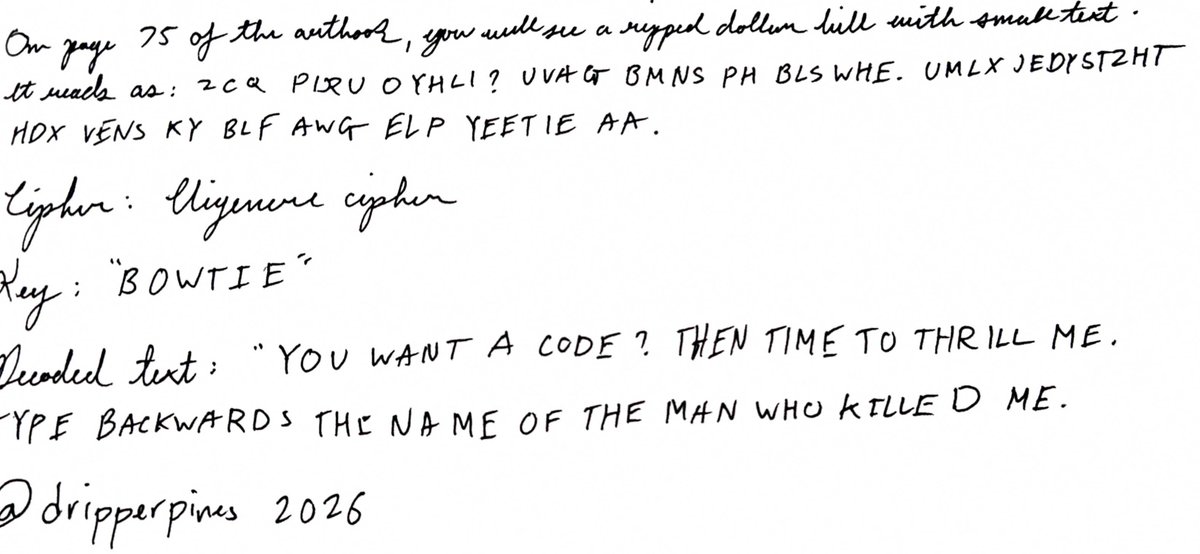 On page 75 of the artbook, you will see a ripped dollar bill with small text.
It reads as: ZCQ PIRU O YHLI? UVAG BMNS PH BLSWHE. UMLX JEDYSTZHT
HDX VENS KY BLF AWG ELP YEETIE AA.
Cipher: Vigenere cipher
Key: "BOWTIE"
Decoded text: "YOU WANT A CODE? THEN TIME TO THRILL ME.
TYPE BACKWARDS THE NAME OF THE MAN WHO KILLED ME.
@dripperpines 2026